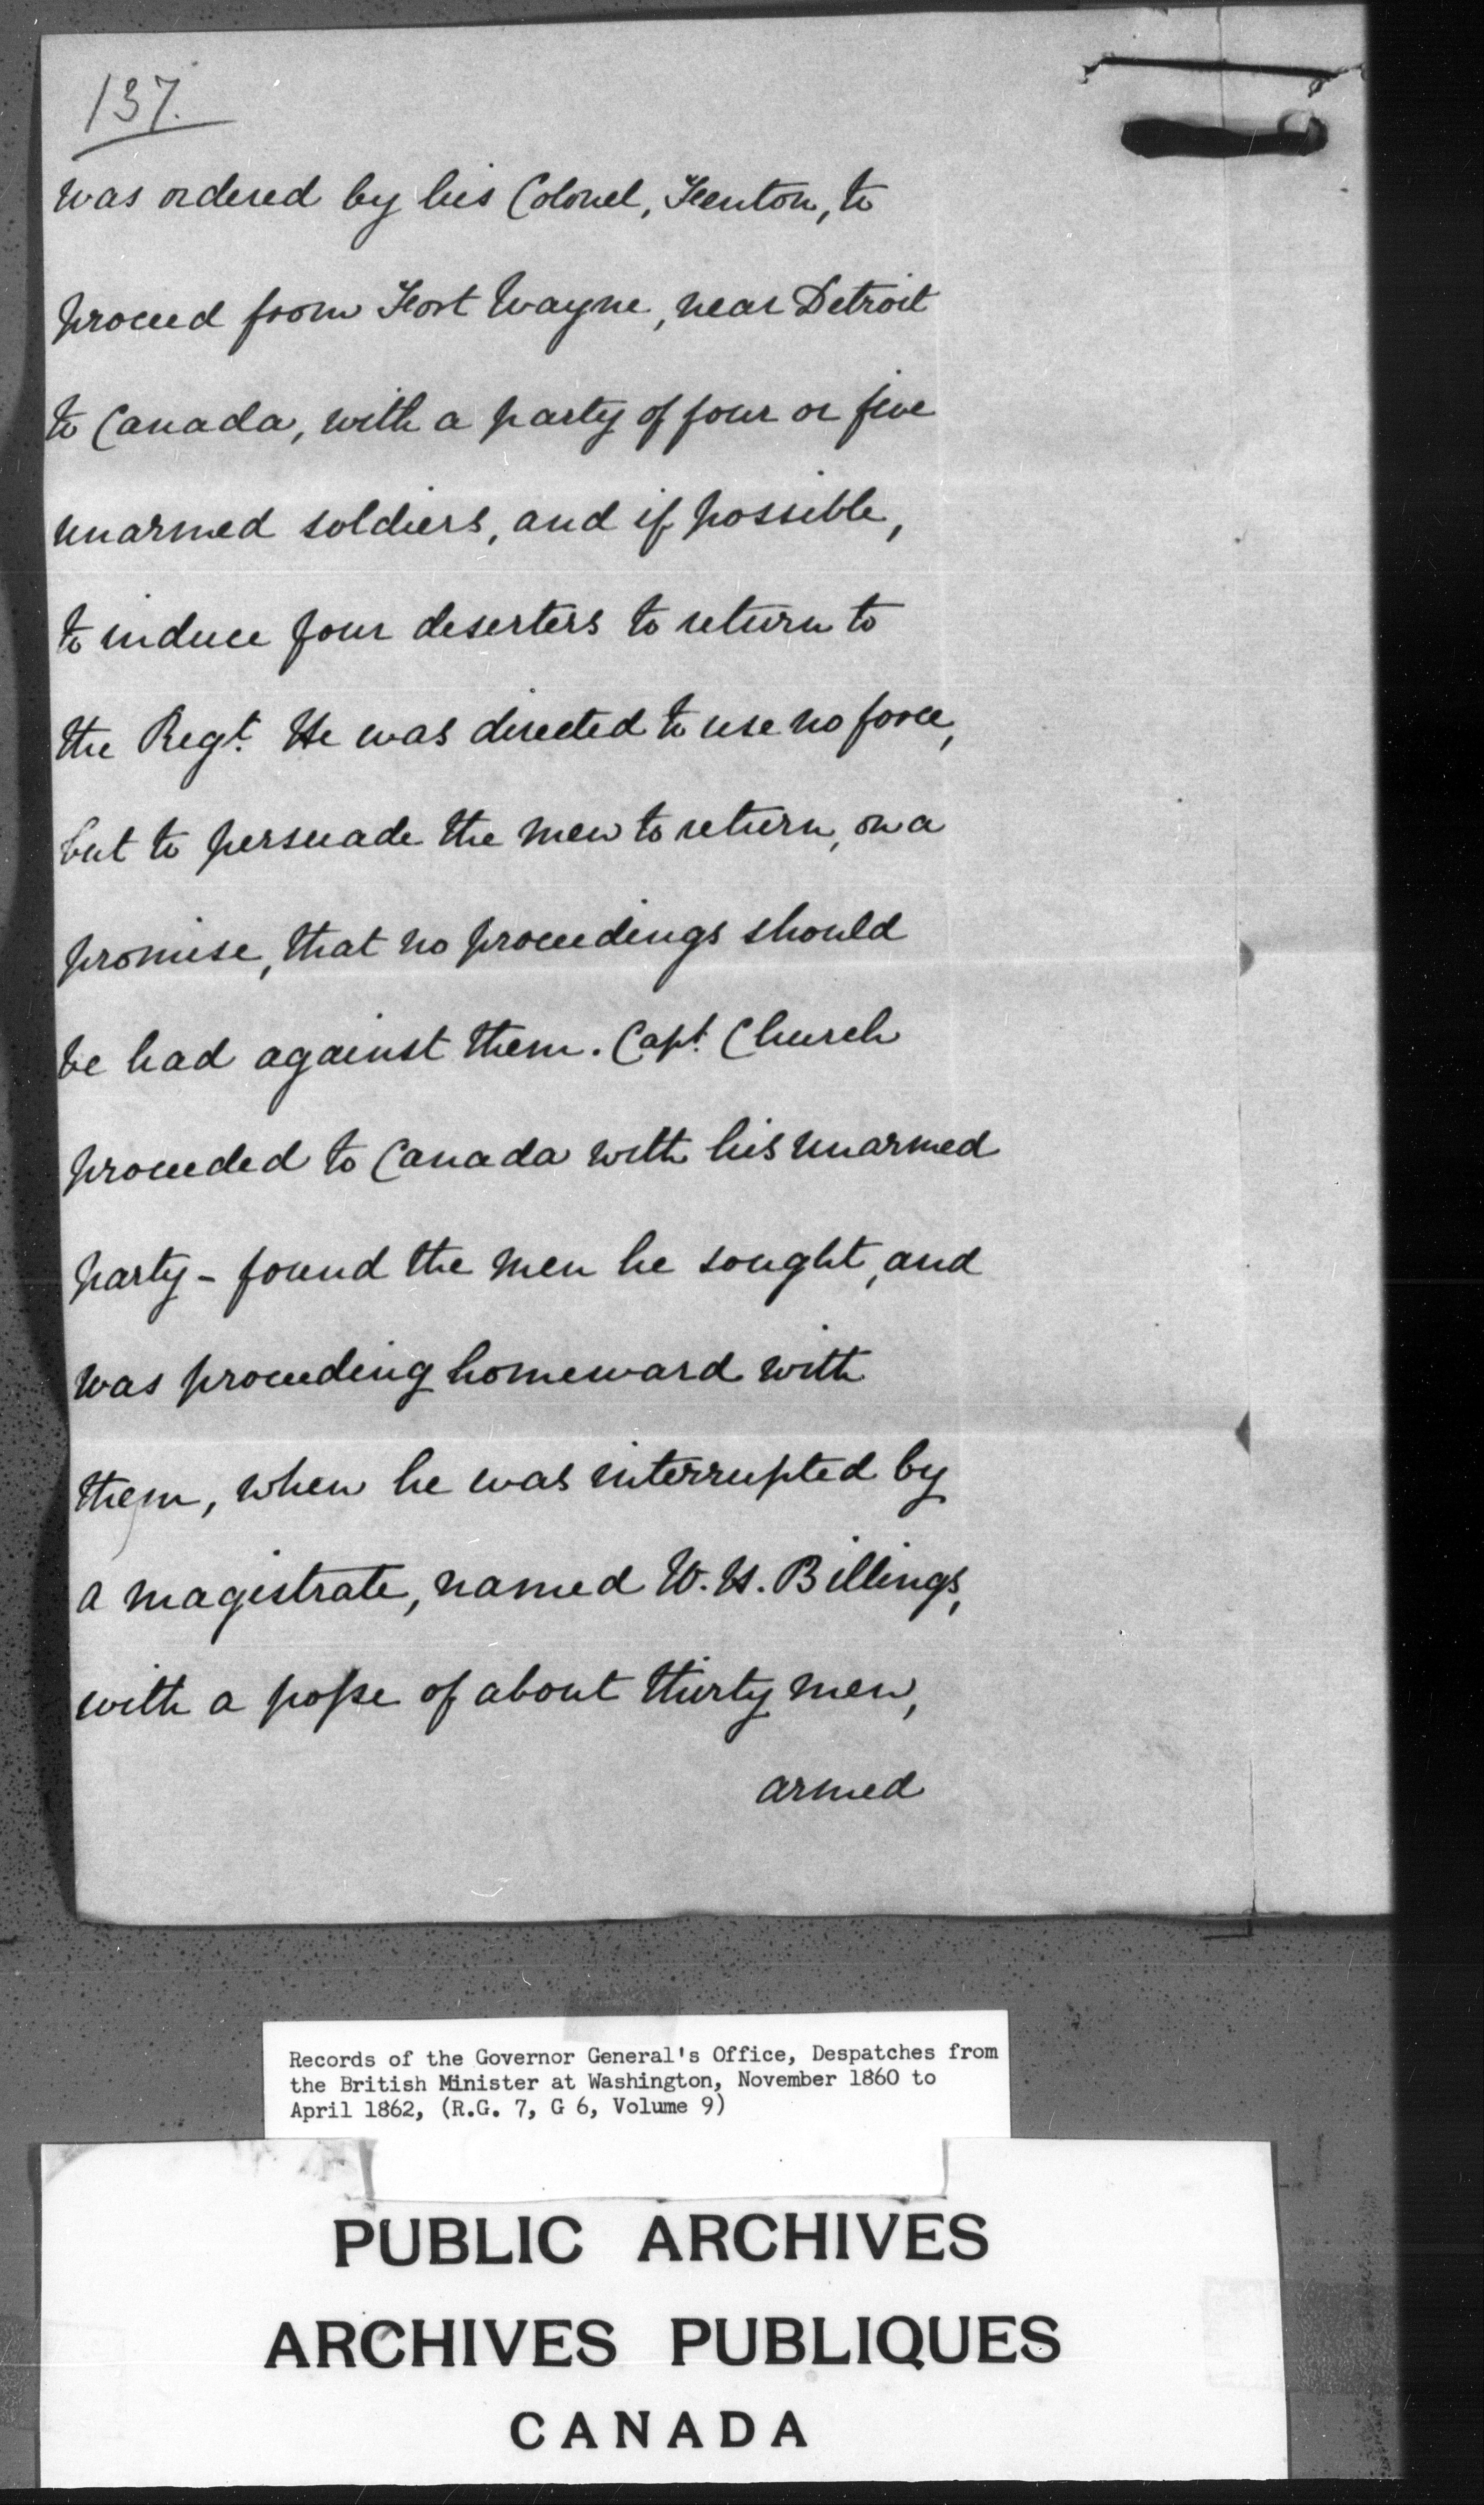 137.
was ordered by his Colonel, Fenton, to
proceed from Fort Wayne, near Detroit
to Canada, with a party of four or five
unarmed soldiers, and if possible,
to induce four deserters to return to
the Regt. He was directed to use no force,
but to persuade the men to return, on a
promise, that no proceedings should
be had against them. Capt. Church
proceeded to Canada with his unarmed
party - found the men he sought, and
was proceeding homeward with
them, when he was interrupted by
a magistrate, named W. H. Billings,
with a posse of about thirty men,
armed
Records of the Governor General's Office, Despatches from
the British Minister at Washington, November 1860 to
April 1862, (R.G. 7, G 6, Volume 9)
PUBLIC ARCHIVES
ARCHIVES PUBLIQUES
CANADA